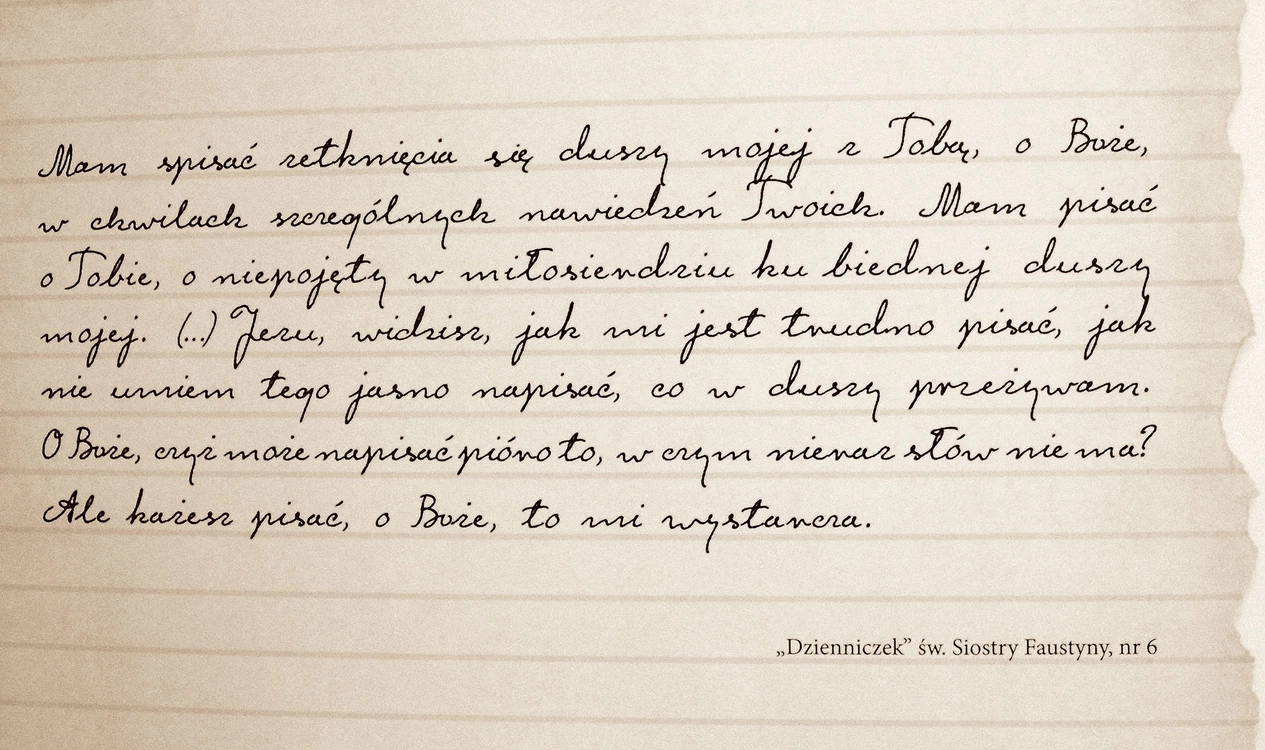 Mam spisać zetknięcia się duszy mojej z Tobą, o Boże,
w chwilach szczególnych nawiedzeń Twoich. Mam pisać
o Tobie, o niepojęty w miłosierdziu ku biednej duszy
mojej. (...) Jezu, widzisz, jak mi jest trudno pisać, jak
nie umiem tego jasno napisać, co w duszy przeżywam.
O Boże, czyż może napisać pióro to, w czym nieraz słów nie ma?
Ale każesz pisać, o Boże, to mi wystarcza.
„Dzienniczek” św. Siostry Faustyny, nr 6